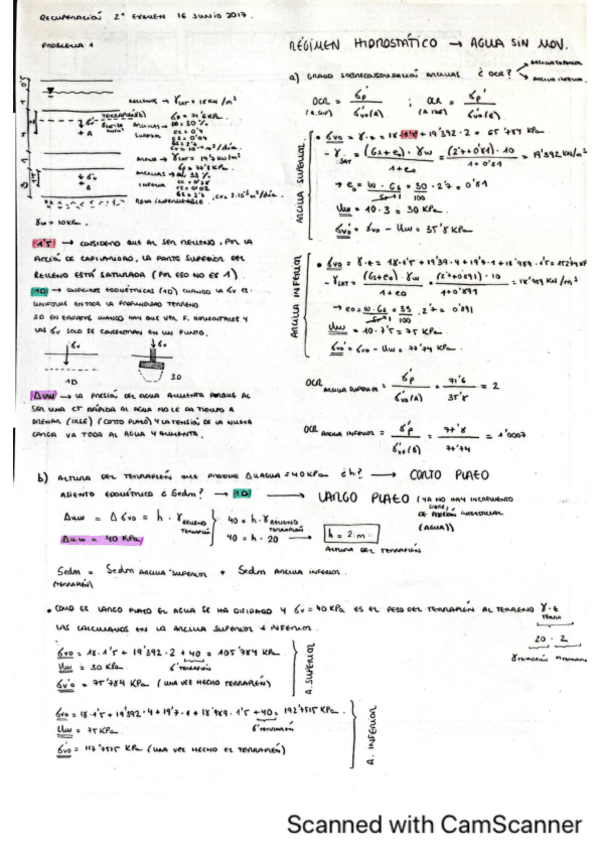 RECUPERACIÓN 2º EXAMEN 16 JUNIO 2017.
PROBLEMA 1
RELLENOS → γSAT = 18 KN/m³
TERRAPLÉN
ARCILLAS → ω = 30%
SUPERIOR
ARENA → γSAT = 19'7 KN/m³
ARCILLAS → ω = 33%
INFERIOR
ROCA IMPERMEABLE
γw = 10 KN
1'5 → CONSIDERO QUE AL SER RELLENO, POR LA
ACCIÓN DE CAPILARIDAD, LA PARTE SUPERIOR DEL
RELLENO ESTÁ SATURADA (POR ESO NO ES 1)
1D → CONDICIONES EDOMÉTRICAS (1D) CUANDO LA σv ES
UNIFORME EN TODA LA PROFUNDIDAD TERRENO
3D EN ZAPATAS CUANDO HAY QUE VER F. HORIZONTALES Y
LAS σv SOLO SE CONCENTRAN EN UN PUNTO.
σv σv
1D 3D
Δuw → LA PRESIÓN DEL AGUA AUMENTA PORQUE AL
SER UNA CT RÁPIDA AL AGUA NO LE DA TIEMPO A
DRENAR (IRSE) (CORTO PLAZO) Y LA TENSIÓN DE LA NUEVA
CARGA VA TODA AL AGUA Y AUMENTA.
RÉGIMEN HIDROSTÁTICO → AGUA SIN MOV.
a) GRADO SOBRECONSOLIDACIÓN ARCILLAS. ¿OCR?
ARCILLA SUPERIOR
ARCILLA INFERIOR
OCR = σp' / σ'vo(A) ; OCR = σp' / σ'vo(B)
(A. SUP) (A. INF)
ARCILLA SUPERIOR
• σvo = γ·z = 18·1'5 + 19'392·2 = 65'784 KPa
- γSAT = (Gs+eo)·γw / 1+eo = (2'7+0'81)·10 / 1+0'81 = 19'392 KN/m³
→ eo = ω·Gs / Sr = 30/100 · 2'7 = 0'81
Uw = 10·3 = 30 KPa
σ'vo = σvo - Uw = 35'8 KPa
ARCILLA INFERIOR
• σvo = γ·z = 18·1'5 + 19'39·4 + 19'7·1 + 18'989·1'5 =
- γSAT = (Gs+eo)·γw / 1+eo = (2'7+0'891)·10 / 1+0'891 = 18'989 KN/m³
→ eo = ω·Gs / Sr = 33/100 · 2'7 = 0'891
Uw = 10·7'5 = 75 KPa
σ'vo = σvo - Uw = 77'74 KPa
OCR ARCILLA SUPERIOR = σ'p / σ'vo(A) = 71'6 / 35'8 = 2
OCR ARCILLA INFERIOR = σ'p / σ'vo(B) = 77'8 / 77'74 = 1'0007
b) ALTURA DEL TERRAPLÉN QUE PRODUCE ΔUAGUA = 40 KPa ¿h? → CORTO PLAZO
ASIENTO EDOMÉTRICO ¿Sedm? → 1D → LARGO PLAZO (YA NO HAY INCREMENTO
DE PRESIÓN INTERSTICIAL
(AGUA))
Δuw = Δσvo = h·γRELLENO TERRAPLÉN
Δuw = 40 KPa
40 = h·γRELLENO TERRAPLÉN
40 = h·20 → h = 2 m
ALTURA DEL TERRAPLÉN
Sedm = Sedm ARCILLA SUPERIOR + Sedm ARCILLA INFERIOR.
(TERRAPLÉN)
• COMO ES LARGO PLAZO EL AGUA SE HA DISIPADO Y σv = 40 KPa ES EL PESO DEL TERRAPLÉN AL TERRENO γ·z
LAS CALCULAMOS EN LA ARCILLA SUPERIOR E INFERIOR.
20 · 2
σvo = 18·1'5 + 19'392·2 + 40 = 105'784 KPa
Uw = 30 KPa. σ TERRAPLÉN
σ'vo = 75'784 KPa (UNA VEZ HECHO TERRAPLÉN)
A. SUPERIOR
σvo = 18·1'5 + 19'392·4 + 19'7·1 + 18'989·1'5 + 40 = 192'7515 KPa.
Uw = 75 KPa σ TERRAPLÉN
σ'vo = 117'7515 KPa (UNA VEZ HECHO EL TERRAPLÉN)
A. INFERIOR
Scanned with CamScanner